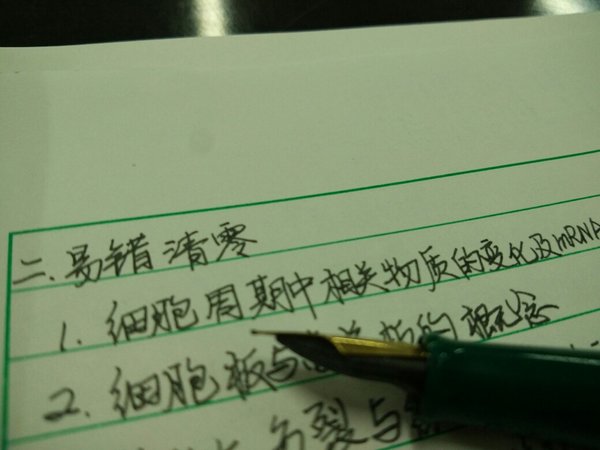 二.易错清零
1.细胞周期中相关物质的变化及mRNA
2.细胞板与 板的概念
裂与